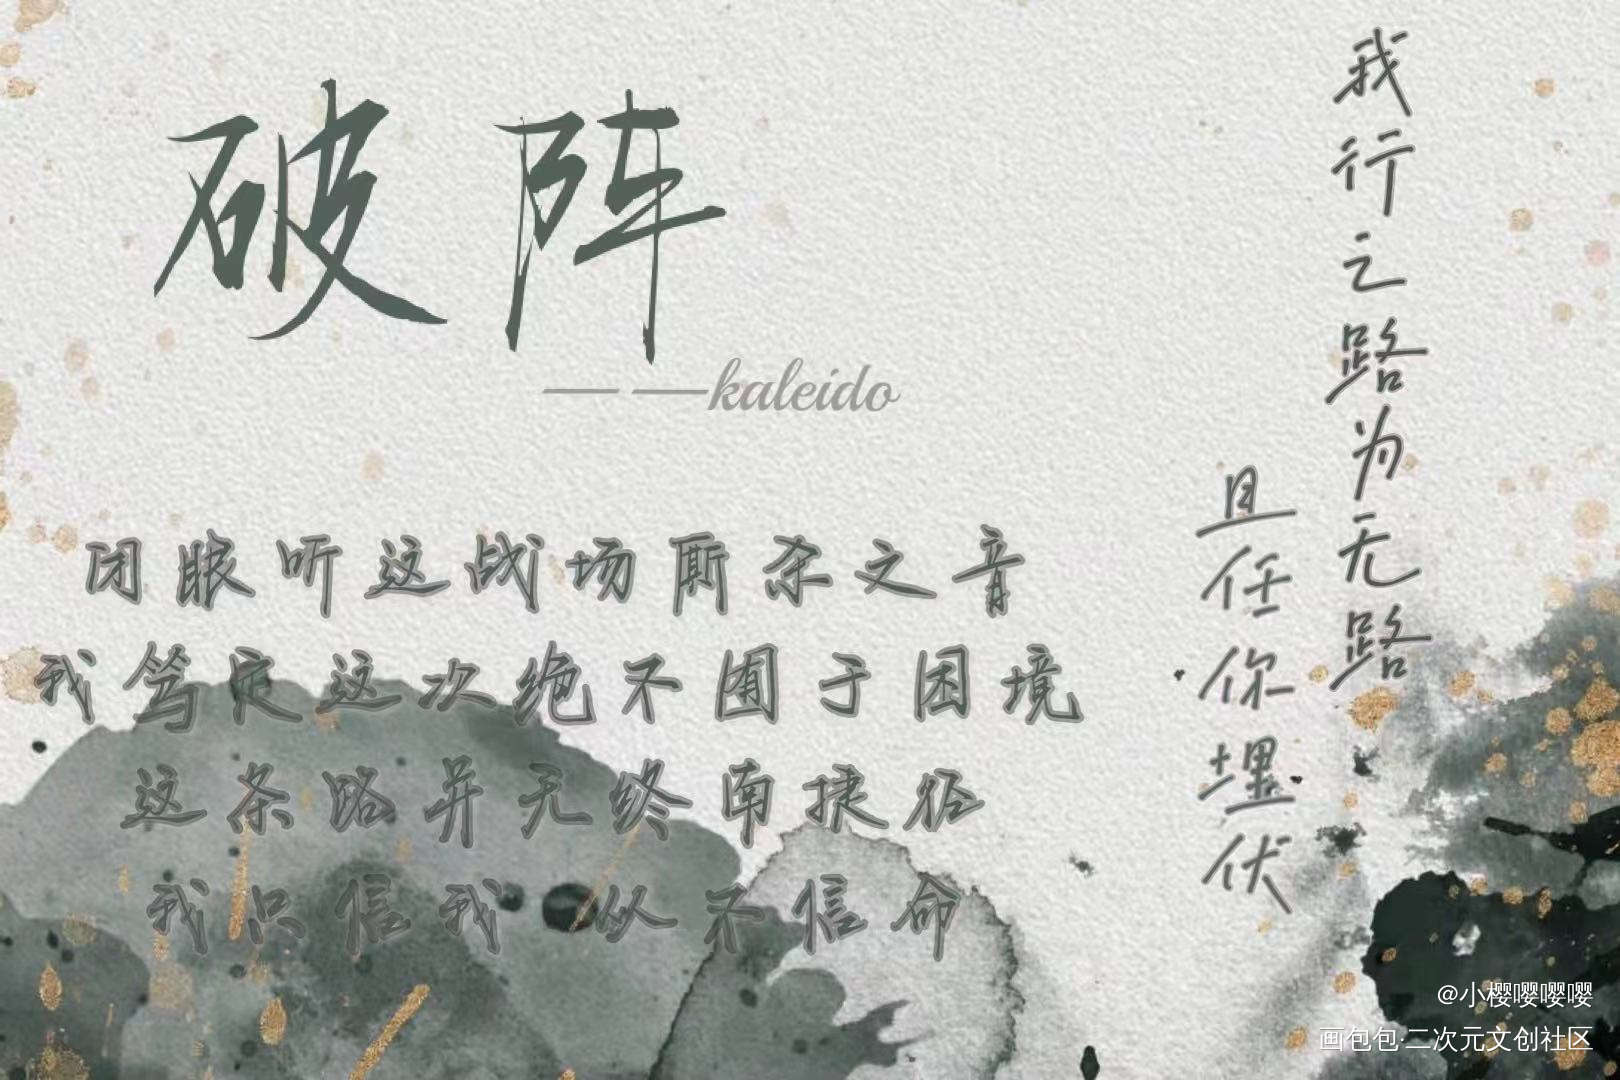 破阵
——kaleido
闭眼听这战场厮杀之音
我笃定这次绝不囿于困境
这条路并无终南捷径
我只信我 从不信命
我行之路为无路
且任你埋伏
@小樱嘤嘤嘤
画包包·二次元文创社区